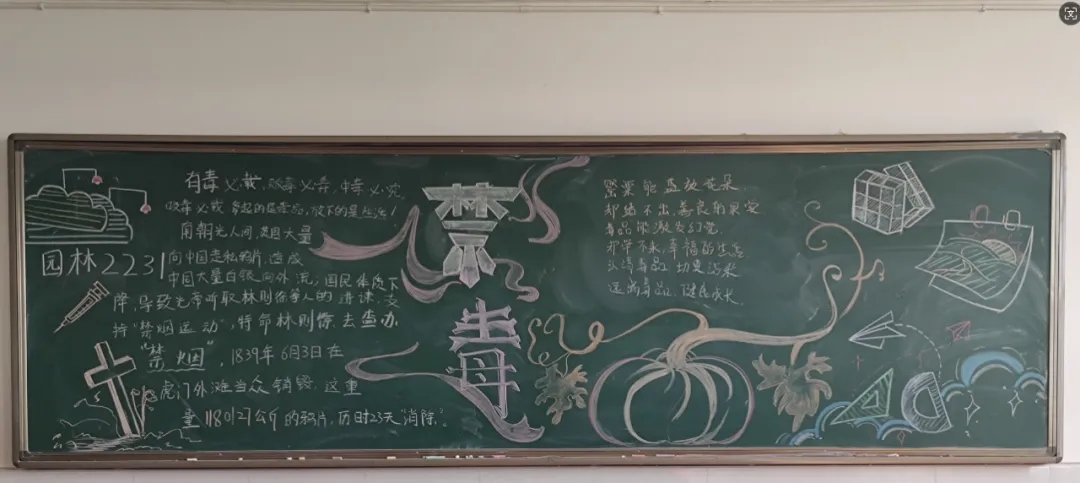 有毒必裁,贩毒必惩,种毒必究
吸毒必戒 拿起的是毒品,放下的是生活!
清朝 人间 英国大量
园林2231
向中国走私鸦片,造成
中国大量白银向外流;国民体质下
降,导致 帝听取林则徐等人的 谏,支
持"禁烟运动",特命林则徐去查办.
"禁烟",1839年6月3日在
虎门外滩当众销毁.这重
量 公斤的鸦片,历时23天"消除".
禁
毒
罂粟能盛放花朵
却结不出善良的果实
毒品能激发幻觉
却带不来幸福的生活
认清毒品
远离毒品,健康成长.